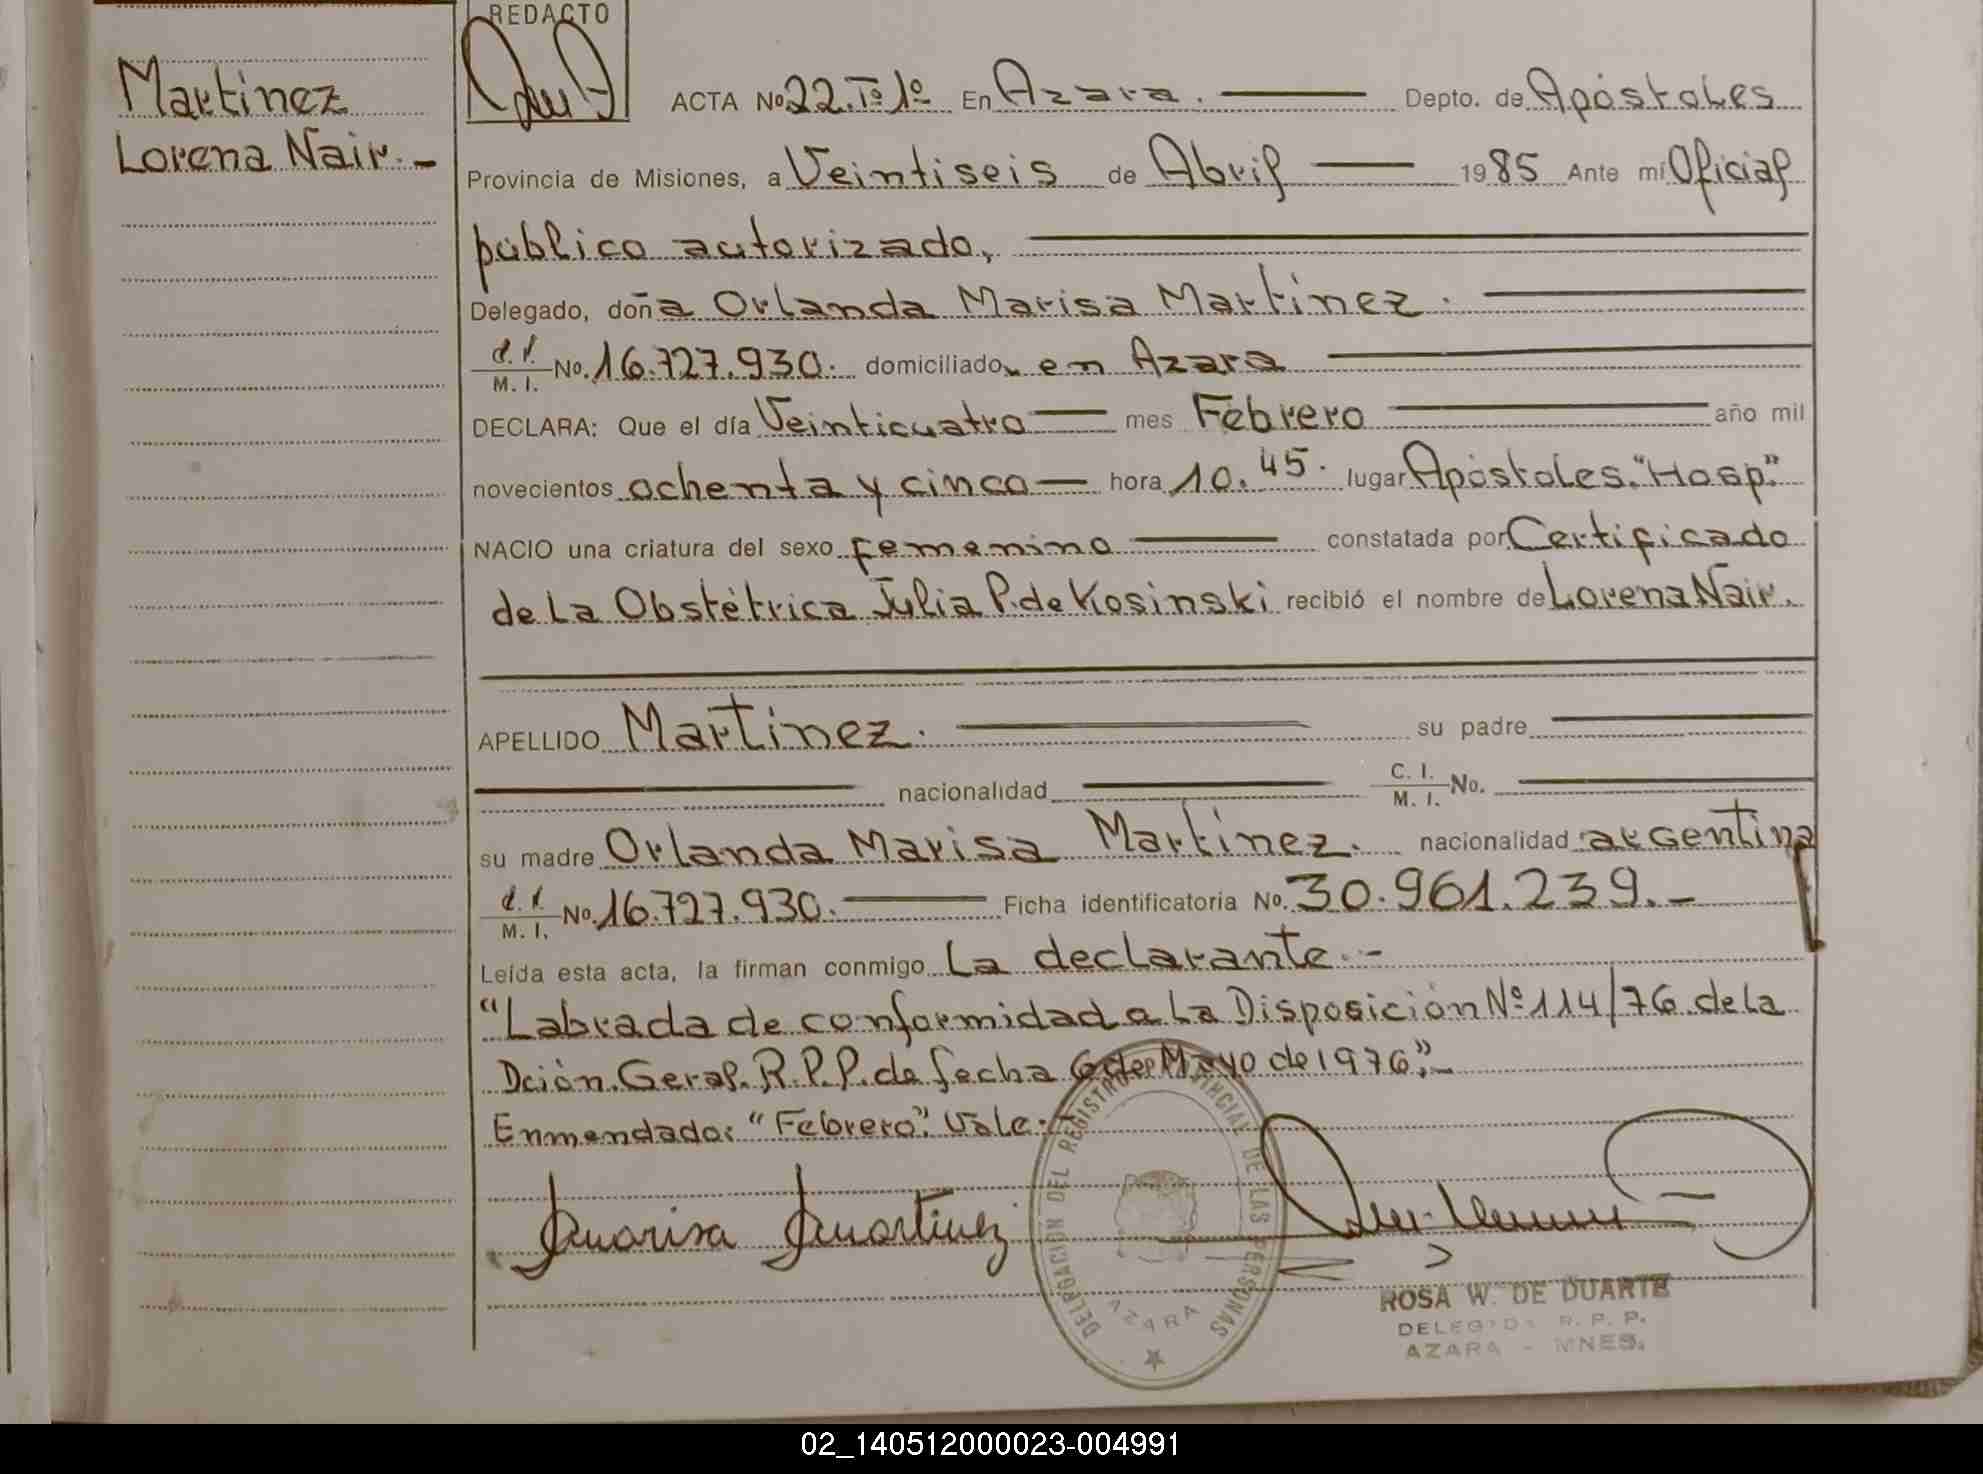 REDACTO
Martinez
Lorena Nair.-
ACTA No 22.Tº1º En Azara. Depto. de Apóstoles
Provincia de Misiones, a Veintiseis de Abril 1985 Ante mí Oficial
público autorizado,
Delegado, doña Orlanda Marisa Martinez.
M. I. No. 16.727.930. domiciliado en Azara
DECLARA: Que el día Veinticuatro mes Febrero año mil
novecientos ochenta y cinco hora 10.45. lugar Apóstoles."Hosp."
NACIO una criatura del sexo femenino constatada por Certificado
de La Obstétrica Julia P. de Kosinski recibió el nombre de Lorena Nair.
APELLIDO Martinez. su padre
nacionalidad C. I. M. I. No.
su madre Orlanda Marisa Martinez. nacionalidad argentina
M. I. No. 16.727.930. Ficha identificatoria No. 30.961.239.-
Leída esta acta, la firman conmigo La declarante.-
"Labrada de conformidad a La Disposición Nº 114/76 de la
Dción. Geral. R.P.P. de fecha 6 de Mayo de 1976".-
Enmendado: "Febrero". Vale.
Marisa Martinez
DELEGACION DEL REGISTRO PROVINCIAL DE LAS PERSONAS
AZARA
ROSA W. DE DUARTE
DELEGADA R. P. P.
AZARA - MNES.
02_140512000023-004991